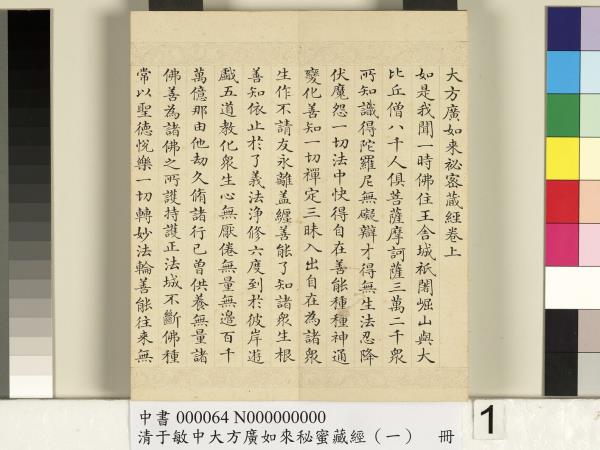 大方廣如來祕密藏經卷上
如是我聞一時佛住王舍城祇闍崛山與大
比丘僧八千人俱菩薩摩訶薩三萬二千衆
所知識得陀羅尼無礙辯才得無生法忍降
伏魔怨一切法中快得自在善能種種神通
變化善知一切禪定三昧入出自在為諸衆
生作不請友永離盖纏善能了知諸衆生根
善知依止於了義法淨修六度到於彼岸遊
戯五道教化衆生心無厭倦無量無邊百千
萬億那由他劫久脩諸行已曾供養無量諸
佛善為諸佛之所護持護正法城不斷佛種
常以聖德悅樂一切轉妙法輪善能往來無
中書 000064 N000000000
清于敏中大方廣如來秘蜜藏經（一） 冊
1